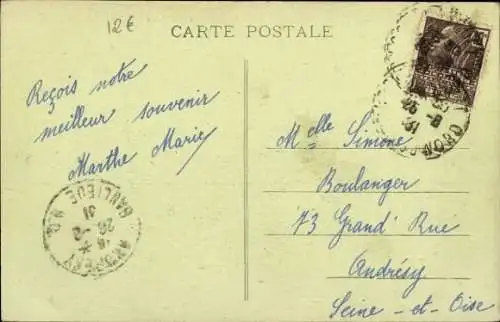 12€
CARTE POSTALE
Reçois notre
meilleur souvenir
Marthe Marie
Melle Simone
Boulanger
73 Grand' Rue
Andrésy
Seine-et-Oise
BANLIEUE N.O.
31